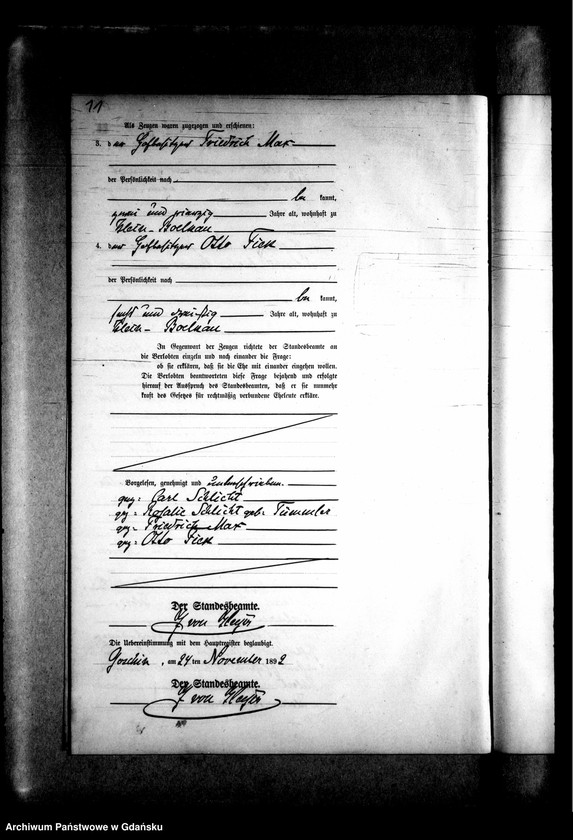 11
Als Zeugen waren zugezogen und erschienen:
3. der Hofbesitzer Friedrich Max
der Persönlichkeit nach
be kannt,
zwei und vierzig Jahre alt, wohnhaft zu
Klein-Boelkau
4. der Hofbesitzer Otto Fick
der Persönlichkeit nach
be kannt,
fünf und dreißig Jahre alt, wohnhaft zu
Klein-Boelkau
In Gegenwart der Zeugen richtete der Standesbeamte an
die Verlobten einzeln und nach einander die Frage:
ob sie erklären, daß sie die Ehe mit einander eingehen wollen.
Die Verlobten beantworteten diese Frage bejahend und erfolgte
hierauf der Ausspruch des Standesbeamten, daß er sie nunmehr
kraft des Gesetzes für rechtmäßig verbundene Eheleute erkläre.
Vorgelesen, genehmigt und unterschrieben.
gez: Carl Schlicht
gez: Rosalie Schlicht geb: Tümmler
gez: Friedrich Max
gez: Otto Fick
Der Standesbeamte.
von Heyer
Die Uebereinstimmung mit dem Hauptregister beglaubigt.
am 24 ten November 1892
Der Standesbeamte.
von Heyer
Archiwum Państwowe w Gdańsku